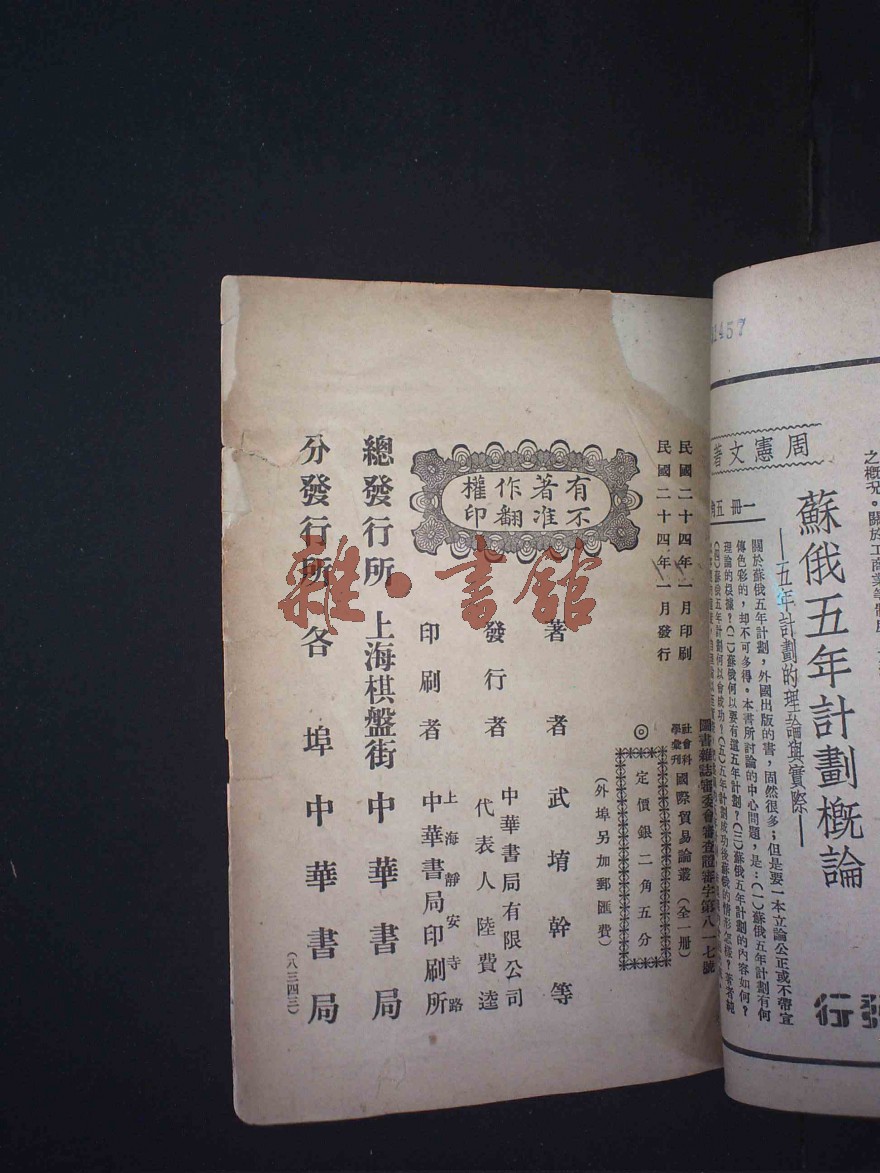 1457
周憲文著
蘇俄五年計劃概論
—五年計劃的理論與實際—
一冊 五角
關於蘇俄五年計劃，外國出版的書，固然很多；但是要一本立論公正或不帶宣
傳色彩的，却不可多得。本書所討論的中心問題，是：（一）蘇俄五年計劃有何
理論的根據？（二）蘇俄何以要有這五年計劃？（三）蘇俄五年計劃的內容如何？
（四）蘇俄五年計劃何以會成功？（五）五年計劃成功後蘇俄的情形怎樣？著者純
之概況。關於工商業等
發行
圖書雜誌審委會審查證審字第八一七號
民國二十四年一月印刷
民國二十四年一月發行
社會科學彙刊 國際貿易論叢（全一册）
◎定價銀二角五分
（外埠另加郵匯費）
有著作權
不准翻印
著者 武堉幹等
發行者 中華書局有限公司
代表人陸費逵
印刷者 上海靜安寺路
中華書局印刷所
總發行所 上海棋盤街 中華書局
分發行所 各埠中華書局
（八三四三）
雜·書館